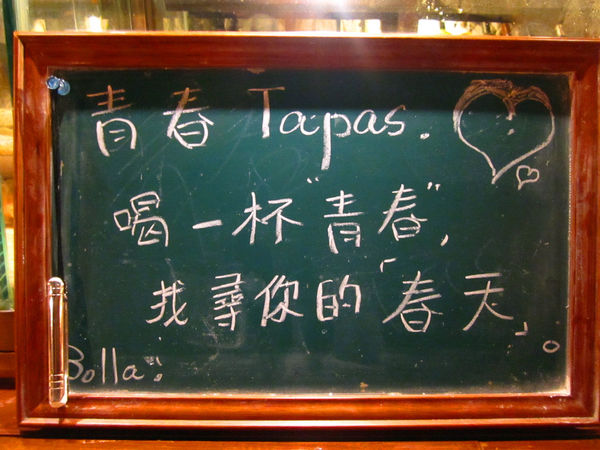 青春 Tapas.
喝一杯"青春",
找尋你的「春天」。
Bolla